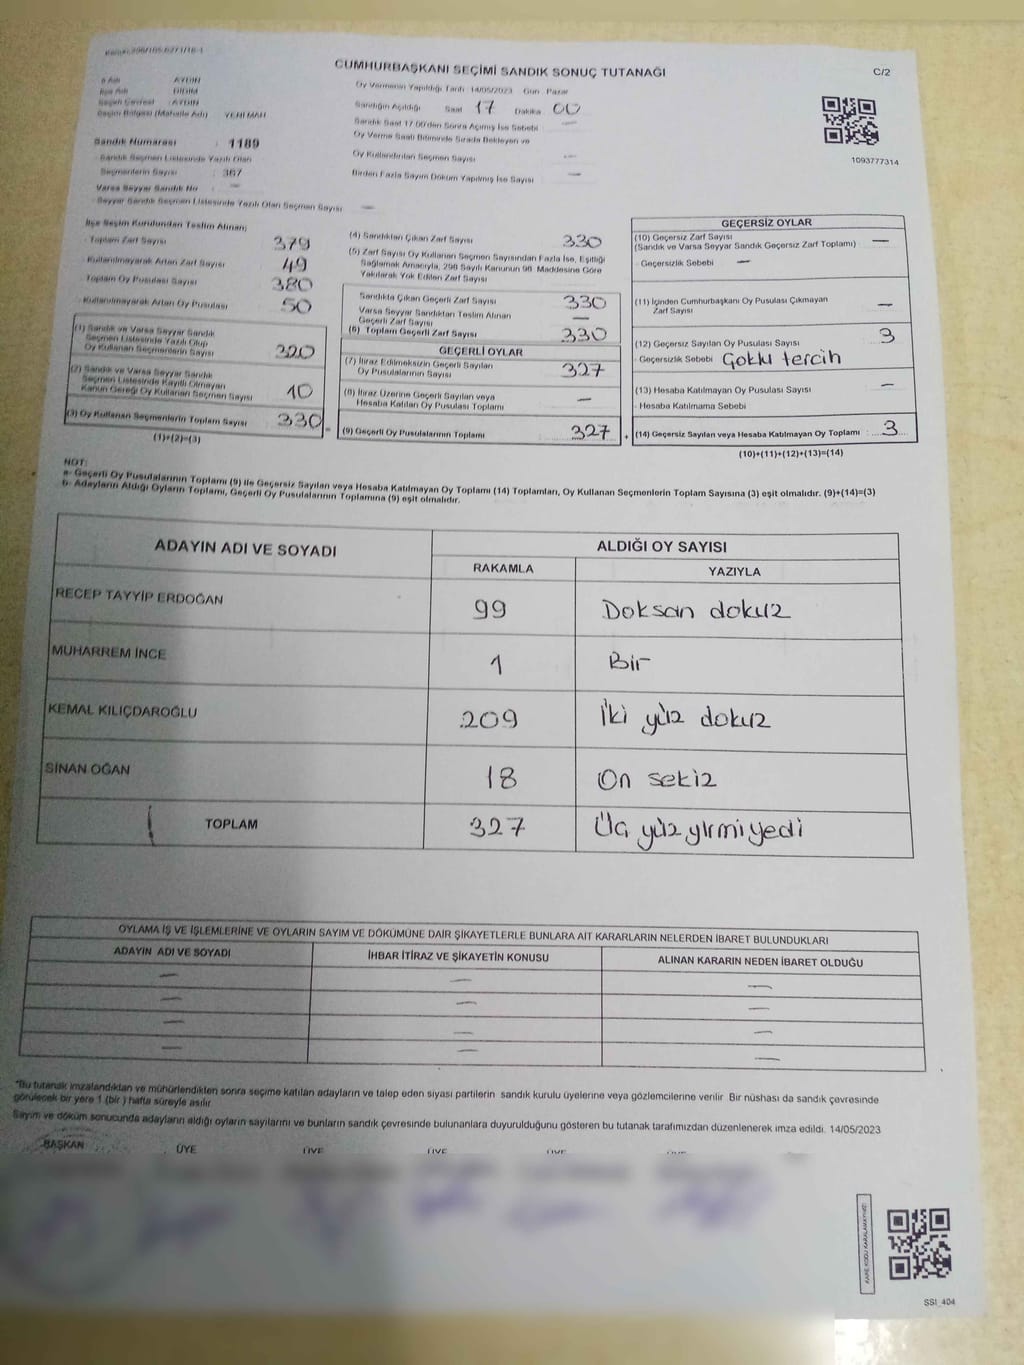 CUMHURBAŞKANI SEÇİMİ SANDIK SONUÇ TUTANAĞI
C/2
İl Adı AYDIN
İlçe Adı DİDİM
Seçim Çevresi : AYDIN
Seçim Bölgesi (Mahalle Adı) YENİ MAH
Sandık Numarası : 1189
Sandık Seçmen Listesinde Yazılı Olan
Seçmenlerin Sayısı : 367
Varsa Seyyar Sandık No : —
Seyyar Sandık Seçmen Listesinde Yazılı Olan Seçmen Sayısı —
Oy Vermenin Yapıldığı Tarih 14/05/2023 Gün Pazar
Sandığın Açıldığı Saat 17 Dakika 00
Sandık Saat 17:00'den Sonra Açılmış İse Sebebi —
Oy Verme Saati Bitiminde Sırada Bekleyen ve
Oy Kullandırılan Seçmen Sayısı —
Birden Fazla Sayım Döküm Yapılmış İse Sayısı —
1093777314
İlçe Seçim Kurulundan Teslim Alınan;
Toplam Zarf Sayısı 379
Kullanılmayarak Artan Zarf Sayısı 49
Toplam Oy Pusulası Sayısı 380
Kullanılmayarak Artan Oy Pusulası 50
(1) Sandık ve Varsa Seyyar Sandık
Seçmen Listesinde Yazılı Olup
Oy Kullanan Seçmenlerin Sayısı 320
(2) Sandık ve Varsa Seyyar Sandık
Seçmen Listesinde Kayıtlı Olmayan
Kanun Gereği Oy Kullanan Seçmen Sayısı 10
(3) Oy Kullanan Seçmenlerin Toplam Sayısı 330
(1)+(2)=(3)
(4) Sandıktan Çıkan Zarf Sayısı 330
(5) Zarf Sayısı Oy Kullanan Seçmen Sayısından Fazla İse, Eşitliği
Sağlamak Amacıyla, 298 Sayılı Kanunun 98. Maddesine Göre
Yakılarak Yok Edilen Zarf Sayısı
Sandıkta Çıkan Geçerli Zarf Sayısı 330
Varsa Seyyar Sandıktan Teslim Alınan
Geçerli Zarf Sayısı —
(6) Toplam Geçerli Zarf Sayısı 330
GEÇERLİ OYLAR
(7) İtiraz Edilmeksizin Geçerli Sayılan
Oy Pusulalarının Sayısı 327
(8) İtiraz Üzerine Geçerli Sayılan veya
Hesaba Katılan Oy Pusulası Toplamı —
(9) Geçerli Oy Pusulalarının Toplamı 327
GEÇERSİZ OYLAR
(10) Geçersiz Zarf Sayısı
(Sandık ve Varsa Seyyar Sandık Geçersiz Zarf Toplamı) —
- Geçersizlik Sebebi —
(11) İçinden Cumhurbaşkanı Oy Pusulası Çıkmayan
Zarf Sayısı —
(12) Geçersiz Sayılan Oy Pusulası Sayısı 3
- Geçersizlik Sebebi Çoklu tercih
(13) Hesaba Katılmayan Oy Pusulası Sayısı —
- Hesaba Katılmama Sebebi
(14) Geçersiz Sayılan veya Hesaba Katılmayan Oy Toplamı : 3
(10)+(11)+(12)+(13)=(14)
NOT:
a- Geçerli Oy Pusulalarının Toplamı (9) ile Geçersiz Sayılan veya Hesaba Katılmayan Oy Toplamı (14) Toplamları, Oy Kullanan Seçmenlerin Toplam Sayısına (3) eşit olmalıdır. (9)+(14)=(3)
b- Adayların Aldığı Oyların Toplamı, Geçerli Oy Pusulalarının Toplamına (9) eşit olmalıdır.
ADAYIN ADI VE SOYADI
ALDIĞI OY SAYISI
RAKAMLA YAZIYLA
RECEP TAYYİP ERDOĞAN 99 Doksan dokuz
MUHARREM İNCE 1 Bir
KEMAL KILIÇDAROĞLU 209 İki yüz dokuz
SİNAN OĞAN 18 On sekiz
TOPLAM 327 Üç yüz yirmi yedi
OYLAMA İŞ VE İŞLEMLERİNE VE OYLARIN SAYIM VE DÖKÜMÜNE DAİR ŞİKAYETLERLE BUNLARA AİT KARARLARIN NELERDEN İBARET BULUNDUKLARI
ADAYIN ADI VE SOYADI İHBAR İTİRAZ VE ŞİKAYETİN KONUSU ALINAN KARARIN NEDEN İBARET OLDUĞU
— — —
— — —
— — —
— — —
*Bu tutanak imzalandıktan ve mühürlendikten sonra seçime katılan adayların ve talep eden siyasi partilerin sandık kurulu üyelerine veya gözlemcilerine verilir. Bir nüshası da sandık çevresinde
görülecek bir yere 1 (bir) hafta süreyle asılır.
Sayım ve döküm sonucunda adayların aldığı oyların sayılarını ve bunların sandık çevresinde bulunanlara duyurulduğunu gösteren bu tutanak tarafımızdan düzenlenerek imza edildi. 14/05/2023
BAŞKAN ÜYE ÜYE ÜYE ÜYE
KARE KODU KARALAMAYINIZ!
SSI_404